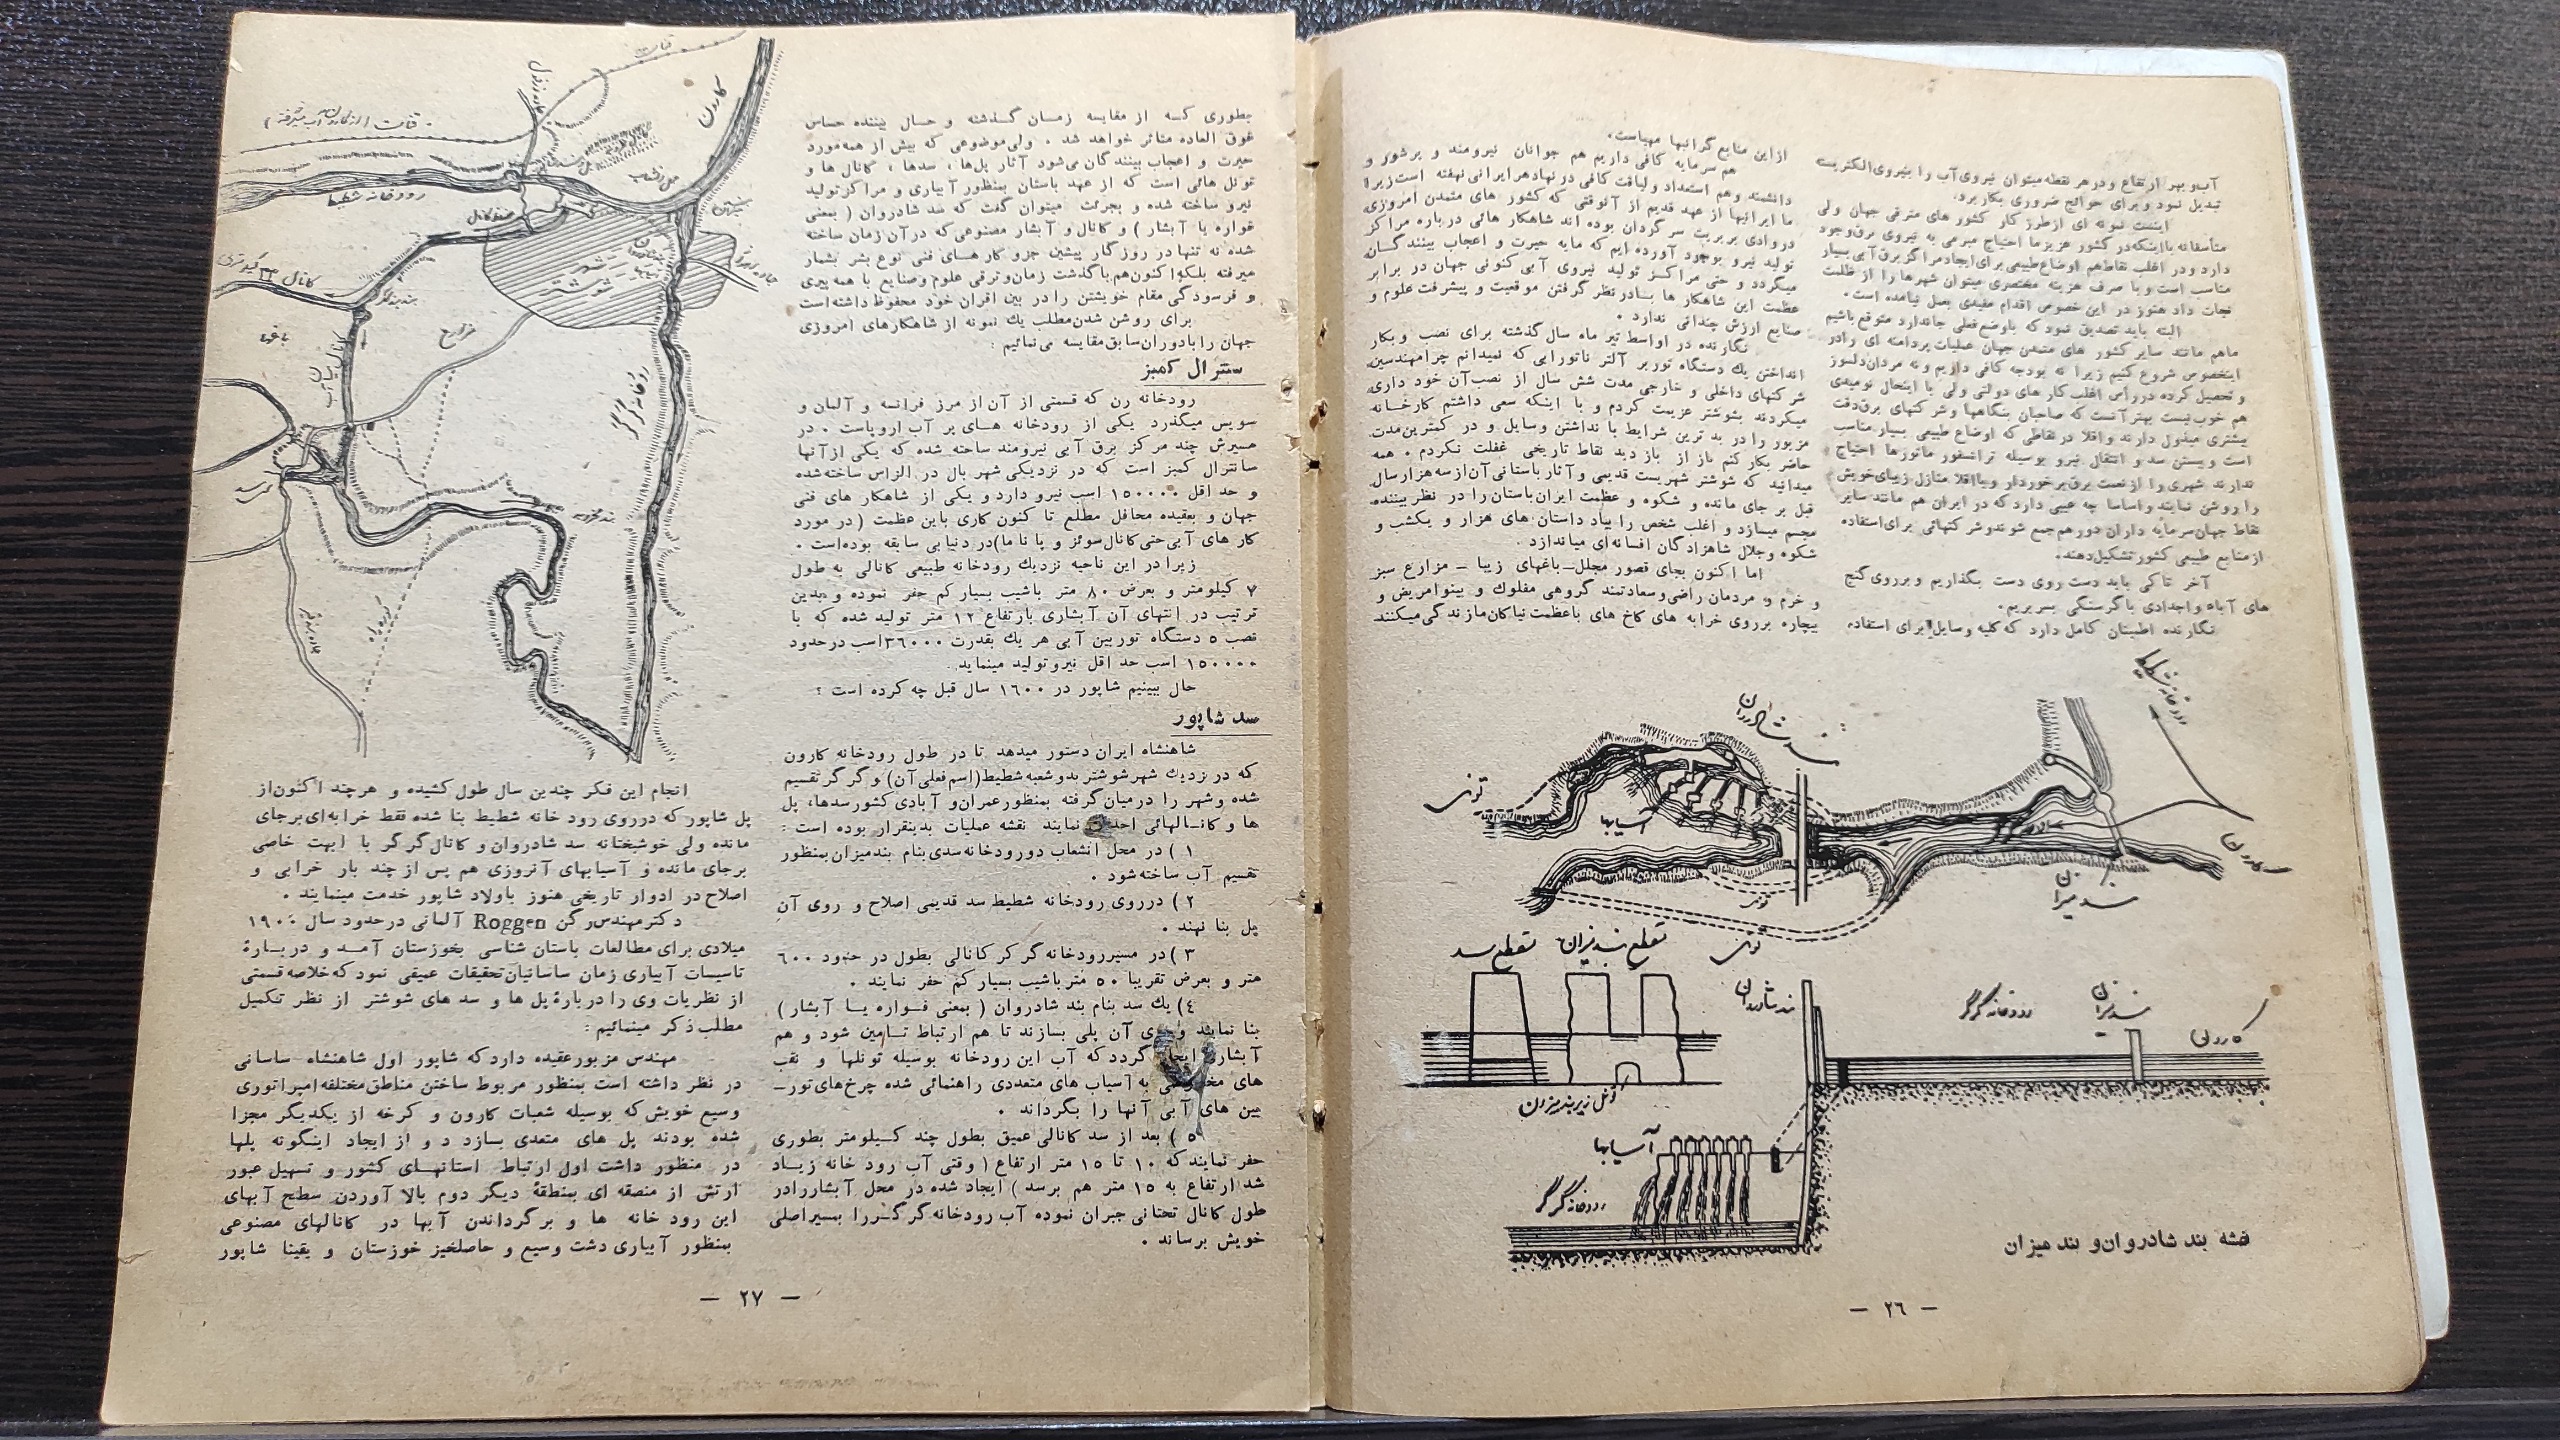 آب و بهر ارتفاع و در هر نقطه میتوان نیروی آب را بنیروی الکتریک
تبدیل نمود و برای حوائج ضروری بکار برد.
اینست نمونه ای از طرز کار کشور های مترقی جهان ولی
متأسفانه با اینکه در کشور عزیز ما احتیاج مبرمی به نیروی برق وجود
دارد و در اغلب نقاط هم اوضاع طبیعی برای ایجاد مراکز برق آبی بسیار
مناسب است و با صرف هزینه مختصری میتوان شهرها را از ظلمت
نجات داد هنوز در این خصوص اقدام مفیدی بعمل نیامده است.
البته باید تصدیق نمود که با وضع فعلی جا ندارد متوقع باشیم
ماهم مانند سایر کشور های متمدن جهان عملیات پر دامنه ای را در
اینخصوص شروع کنیم زیرا نه بودجه کافی داریم و نه مردان دلسوز
و تحصیل کرده در رأس اغلب کار های دولتی ولی با اینحال نومیدی
هم خوب نیست بهتر آنست که صاحبان بنگاهها و شرکتهای برق دقت
بیشتری مبذول دارند و اقلا در نقاطی که اوضاع طبیعی بسیار مناسب
است و بستن سد و انتقال نیرو بوسیله ترانسفورماتورها احتیاج
ندارند شهری را از نعمت برق برخوردار و یا اقلا منازل زیبای خویش
را روشن نمایند و اساسا چه عیبی دارد که در ایران هم مانند سایر
نقاط جهان سرمایه داران دور هم جمع شوند و شرکتهائی برای استفاده
از منابع طبیعی کشور تشکیل دهند.
آخر تا کی باید دست روی دست بگذاریم و بر روی گنج
های آباء و اجدادی با گرسنگی بسر بریم.
نگارنده اطمینان کامل دارد که کلیه وسایل برای استفاده
از این منابع گرانبها مهیاست.
هم سرمایه کافی داریم هم جوانان نیرومند و پرشور و
دانشمند و هم استعداد و لیاقت کافی در نهاد هر ایرانی نهفته است زیرا
ما ایرانیها از عهد قدیم از آنوقتی که کشور های متمدن امروزی
در وادی بربریت سرگردان بوده اند شاهکار هائی درباره مراکز
تولید نیرو بوجود آورده ایم که مایه حیرت و اعجاب بینندگان
میگردد و حتی مراکز تولید نیروی آبی کنونی جهان در برابر
عظمت این شاهکار ها با در نظر گرفتن موقعیت و پیشرفت علوم و
صنایع ارزش چندانی ندارد.
نگارنده در اواسط تیر ماه سال گذشته برای نصب و بکار
انداختن یك دستگاه توربر آلترناتورابی که نمیدانم چرا مهندسین
شرکتهای داخلی و خارجی مدت شش سال از نصب آن خود داری
میکردند بشوشتر عزیمت کردم و با اینکه سعی داشتم کارخانه
مزبور را در بد ترین شرایط با نداشتن وسایل و در کمترین مدت
حاضر بکار کنم باز از بازدید نقاط تاریخی غفلت نکردم. همه
میدانید که شوشتر شهریست قدیمی و آثار باستانی آن از سه هزار سال
قبل بر جای مانده و شکوه و عظمت ایران باستان را در نظر بیننده
مجسم میسازد و اغلب شخص را بیاد داستان های هزار و یکشب و
شکوه و جلال شاهزادگان افسانه‌ای میاندازد.
اما اکنون بجای قصور مجلل- باغهای زیبا - مزارع سبز
و خرم و مردمان راضی و سعادتمند گروهی مفلوك و بینوا مریض و
بیچاره بر روی خرابه های کاخ های با عظمت نیاکان ما زندگی میکنند
رودخانه شطیط
بند شادروان
تونل
آسیابها
کارون
بند میزان
تونل
تونل
مقطع سد
مقطع بند میزان
تونل زیر بند میزان
بند شادروان
رودخانه گرگر
بند میزان
کارون
آسیابها
رودخانه گرگر
نقشه بند شادروان و بند میزان
- ٢٦ -
بطوری که از مقایسه زمان گذشته و حال بیننده حساس
فوق العاده متاثر خواهد شد. ولی موضوعی که بیش از همه مورد
حیرت و اعجاب بینندگان می‌شود آثار پل‌ها، سدها، کانال ها و
تونل هائی است که از عهد باستان بمنظور آبیاری و مراکز تولید
نیرو ساخته شده و بجرئت میتوان گفت که سد شادروان (بمعنی
فواره یا آبشار) و کانال و آبشار مصنوعی که در آن زمان ساخته
شده نه تنها در روزگار پیشین جزو کار های فنی نوع بشر بشمار
میرفته بلکه اکنون هم با گذشت زمان و ترقی علوم و صنایع با همه پیری
و فرسودگی مقام خویشتن را در بین اقران خود محفوظ داشته است
برای روشن شدن مطلب یك نمونه از شاهکارهای امروزی
جهان را با دوران سابق مقایسه می‌نمائیم:
سنترال کمبز
رودخانه رن که قسمتی از آن از مرز فرانسه و آلمان و
سویس میگذرد یکی از رودخانه های پر آب اروپاست. در
مسیرش چند مرکز برق آبی نیرومند ساخته شده که یکی از آنها
سانترال کمبز است که در نزدیکی شهر بال در الزاس ساخته شده
و حد اقل ١٥٠٠٠٠ اسب نیرو دارد و یکی از شاهکار های فنی
جهان و بعقیده محافل مطلع تا کنون کاری باین عظمت (در مورد
کار های آبی حتی کانال سوئز و پاناما) در دنیا بی سابقه بوده است.
زیرا در این ناحیه نزدیك رودخانه طبیعی کانالی به طول
٧ کیلومتر و بعرض ٨٠ متر باشیب بسیار کم حفر نموده و بدین
ترتیب در انتهای آن آبشاری بارتفاع ١٢ متر تولید شده که با
نصب ٥ دستگاه توربین آبی هر یك بقدرت ٣٦٠٠٠ اسب در حدود
١٥٠٠٠٠ اسب حد اقل نیرو تولید مینماید.
حال ببینیم شاپور در ١٦٠٠ سال قبل چه کرده است؟
سد شاپور
شاهنشاه ایران دستور میدهد تا در طول رودخانه کارون
که در نزدیك شهر شوشتر بدو شعبه شطیط (اسم فعلی آن) و گرگر تقسیم
شده و شهر را در میان گرفته بمنظور عمران و آبادی کشور سدها، پل
ها و کانالهائی احداث نمایند نقشه عملیات بدینقرار بوده است:
١) در محل انشعاب دو رودخانه سدی بنام بند میزان بمنظور
تقسیم آب ساخته شود.
٢) در روی رودخانه شطیط سد قدیمی اصلاح و روی آن
پل بنا نهند.
٣) در مسیر رودخانه گرگر کانالی بطول در حدود ٦٠٠
متر و بعرض تقریبا ٥٠ متر باشیب بسیار کم حفر نمایند.
٤) یك سد بنام بند شادروان (بمعنی فواره یا آبشار)
بنا نمایند و روی آن پلی بسازند تا هم ارتباط تامین شود و هم
آبشاری ایجاد گردد که آب این رودخانه بوسیله تونلها و نقب
های مخصوصی به آسیاب های متعددی راهنمائی شده چرخ‌های تور-
بین های آبی آنها را بگرداند.
٥) بعد از سد کانالی عمیق بطول چند کیلومتر بطوری
حفر نمایند که ١٠ تا ١٥ متر ارتفاع (وقتی آب رود خانه زیاد
شد ارتفاع به ١٥ متر هم برسد) ایجاد شده در محل آبشار را در
طول کانال تحتانی جبران نموده آب رودخانه گرگر را بمسیر اصلی
خویش برساند.
قنات
کارون
قنات (از کارون آب میگرفته)
رودخانه شطیط
کانال ٣٣ کیلومتری
شهر شوشتر
باغها
مزارع
رودخانه گرگر
انجام این فکر چندین سال طول کشیده و هر چند اکنون از
پل شاپور که در روی رود خانه شطیط بنا شده فقط خرابه ای بر جای
مانده ولی خوشبختانه سد شادروان و کانال گرگر با ابهت خاصی
بر جای مانده و آسیابهای آنروزی هم پس از چند بار خرابی و
اصلاح در ادوار تاریخی هنوز باولاد شاپور خدمت مینمایند.
دکتر مهندس رگن Roggen آلمانی در حدود سال ١٩٠٠
میلادی برای مطالعات باستان شناسی بخوزستان آمد و دربارهٔ
تاسیسات آبیاری زمان ساسانیان تحقیقات عمیقی نمود که خلاصه قسمتی
از نظریات وی را دربارهٔ پل ها و سد های شوشتر از نظر تکمیل
مطلب ذکر مینمائیم:
مهندس مزبور عقیده دارد که شاپور اول شاهنشاه ساسانی
در نظر داشته است بمنظور مربوط ساختن مناطق مختلفه امپراتوری
وسیع خویش که بوسیله شعبات کارون و کرخه از یکدیگر مجزا
شده بودند پل های متعدی بسازد و از ایجاد اینگونه پلها
در منظور داشت اول ارتباط استانهای کشور و تسهیل عبور
ارتش از منصقه ای بمنطقهٔ دیگر دوم بالا آوردن سطح آبهای
این رود خانه ها و برگرداندن آبها در کانالهای مصنوعی
بمنظور آبیاری دشت وسیع و حاصلخیز خوزستان و یقینا شاپور
- ٢٧ -